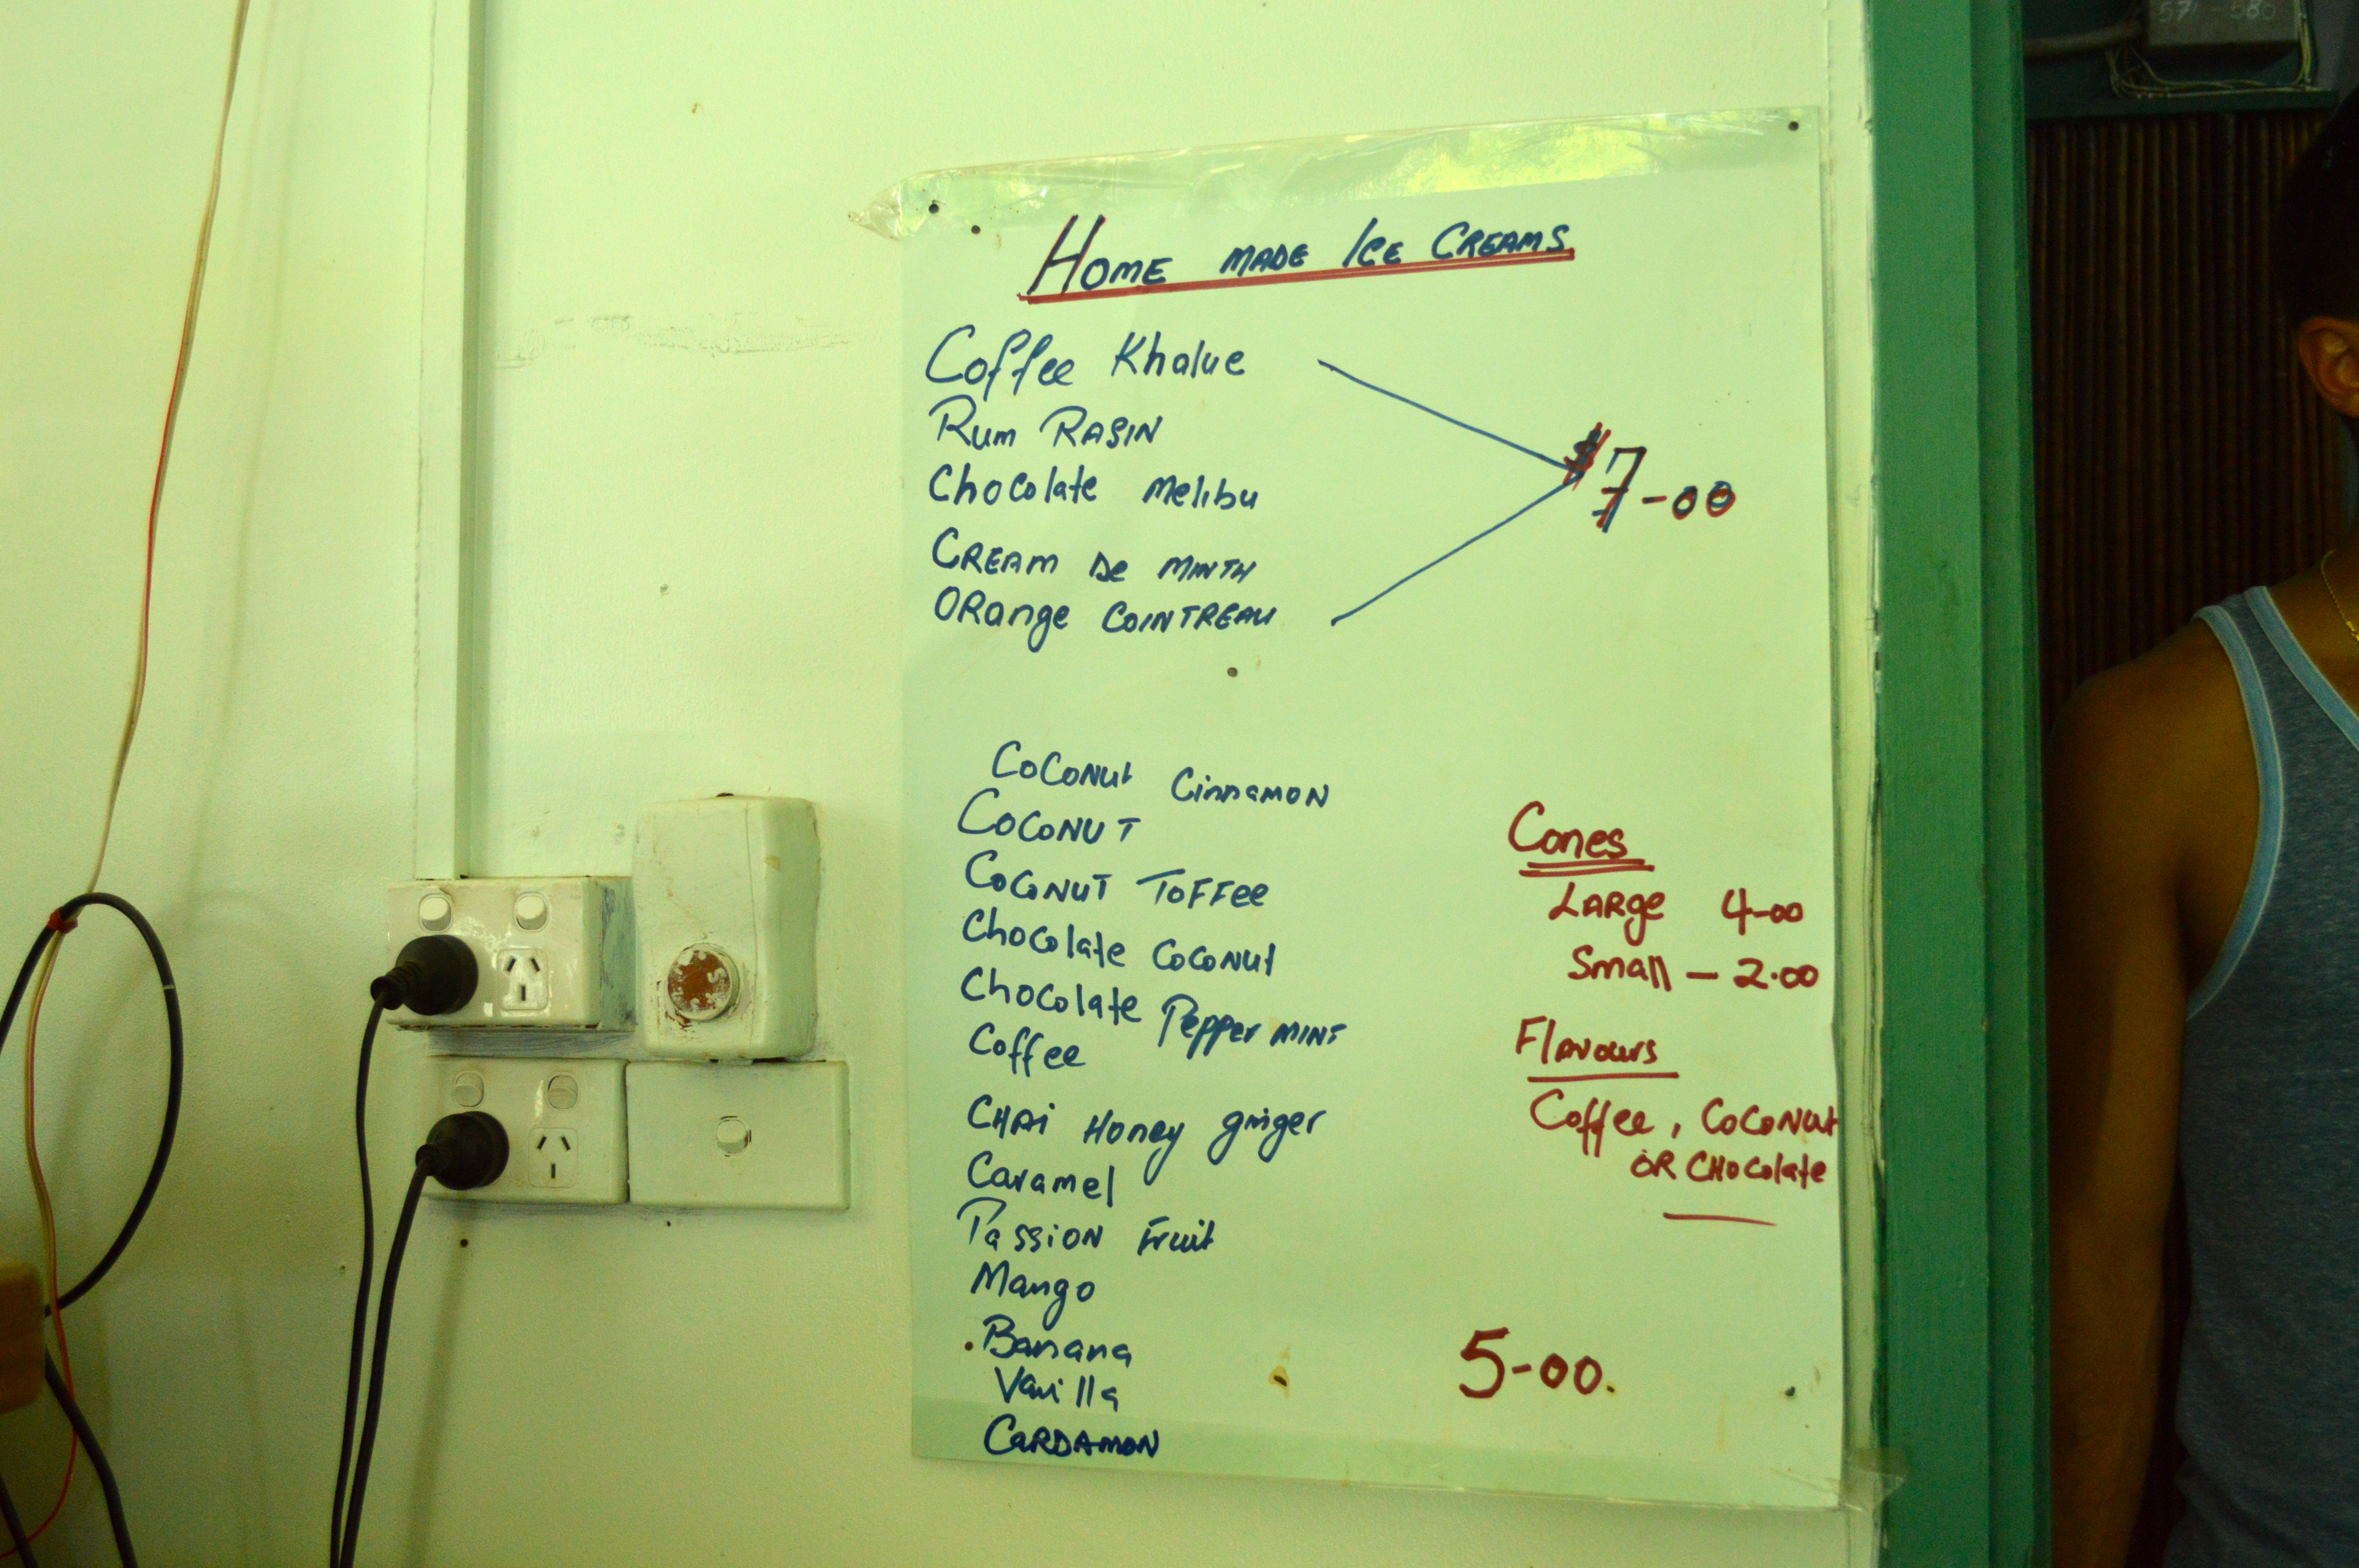 571-580
HOME MADE ICE CREAMS
Coffee Khalue
Rum RASIN
Chocolate Melibu
CREAM De MINTH
ORange COINTREAU
$7-00
COCONUt CinnamON
COCONUT
COCONUT TOFFee
Chocolate COCONUt
Chocolate Pepper MINT
Coffee
CHAi Honey ginger
Caramel
Passion Fruit
Mango
Banana
Vanilla
CaRDAMON
Cones
LARge 4-00
Small - 2.00
Flavours
Coffee, COCONUt
OR CHocolate
5-00.